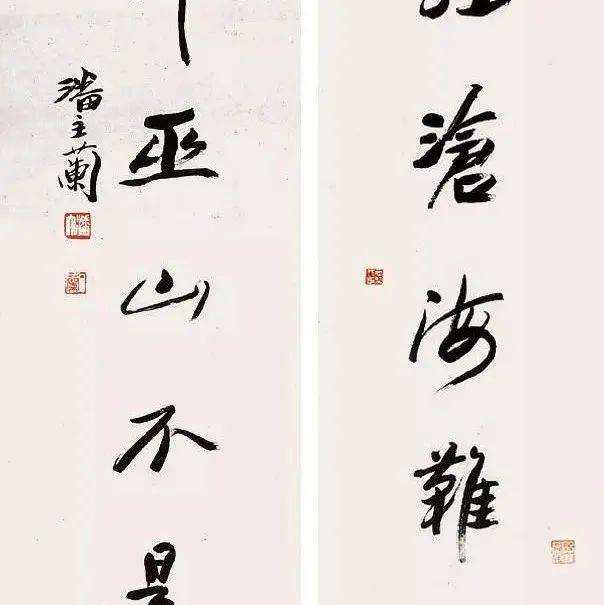 滄海難
巫山不
潘主蘭